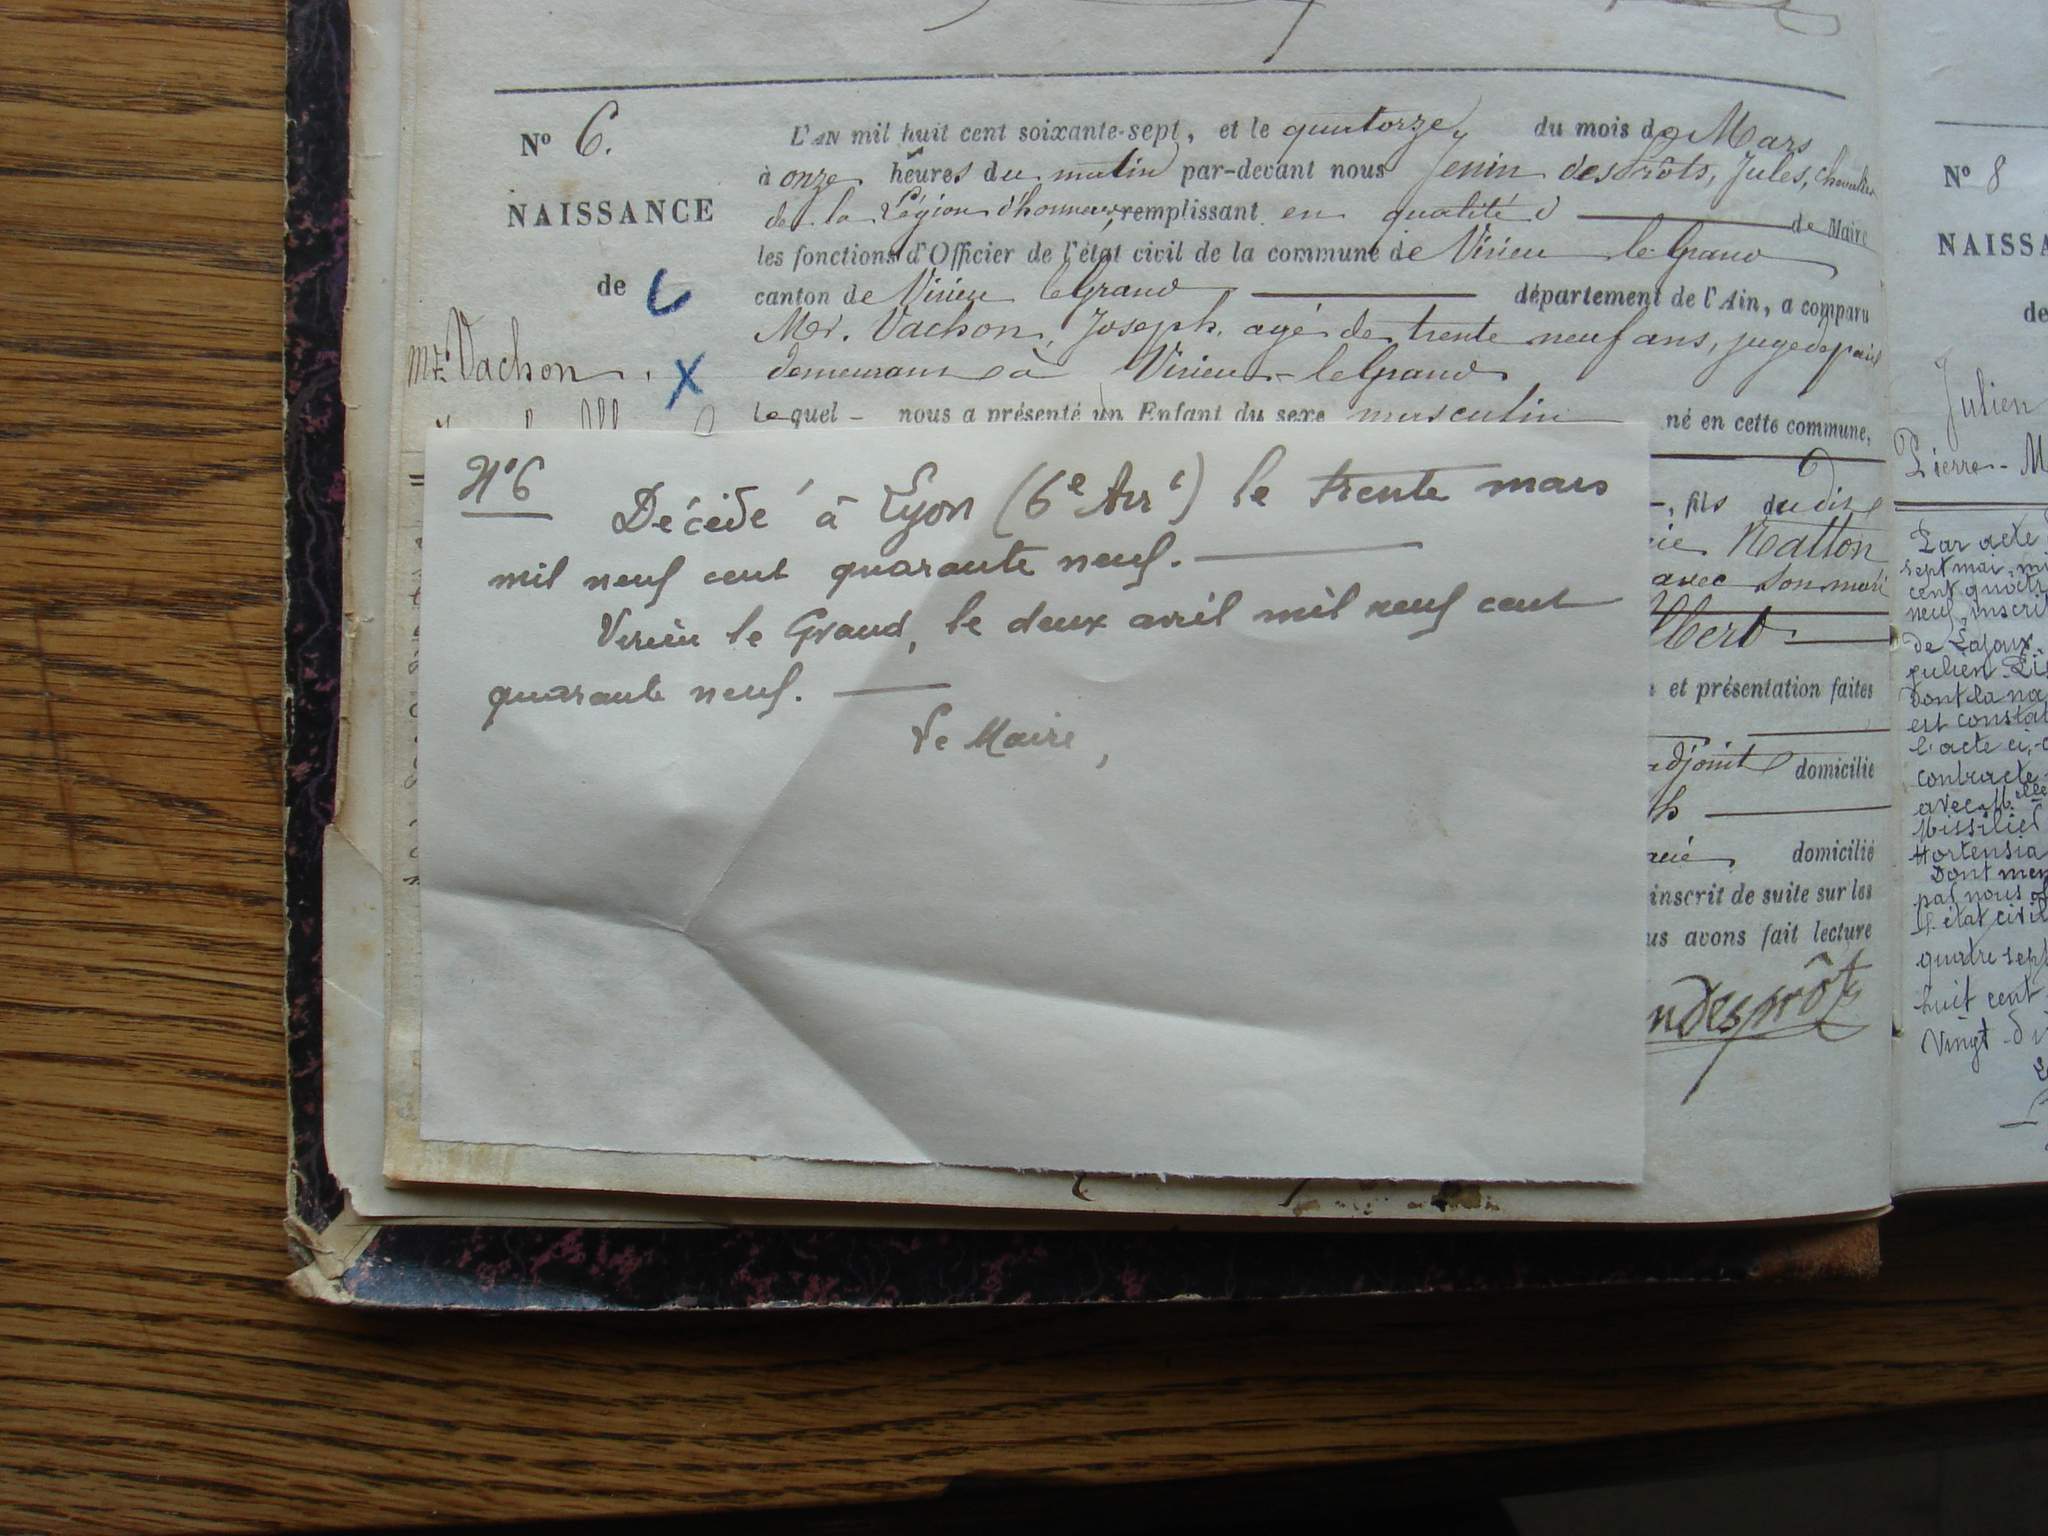 N° 6.
NAISSANCE
de
Mr. Vachon
L'AN mil huit cent soixante-sept, et le quatorze du mois de Mars
à onze heures du matin par-devant nous Jenin desprôts, Jules, chevalier
de la Légion d'honneur, remplissant en qualité d de Maire
les fonctions d'Officier de l'état civil de la commune de Virieu le Grand
canton de Virieu le Grand département de l'Ain, a comparu
Mr. Vachon, Joseph, agé de trente neuf ans, juge de paix
demeurant à Virieu-le Grand
lequel nous a présenté un Enfant du sexe masculin né en cette commune,
N° 6
Décédé à Lyon (6e Arrt) le trente mars
mil neuf cent quarante neuf.
Virieu le Grand, le deux avril mil neuf cent
quarante neuf.
Le Maire,
, fils du dit
Natton
avec son mari
et présentation faites
adjoint domicilié
domicilié
inscrit de suite sur les
us avons fait lecture
ndesprôts
N° 8
NAISSA
de
Julien
Pierre-M
Par acte
sept mai mi
cent quatre
neuf, inscrit
de Lajoux
julien Pi
dont la na
est constat
l'acte ci-
contracte
avec Mlle
Missilier
Hortensia
Dont men
par nous of
l'état civil
quatre sept
huit cent
vingt-di